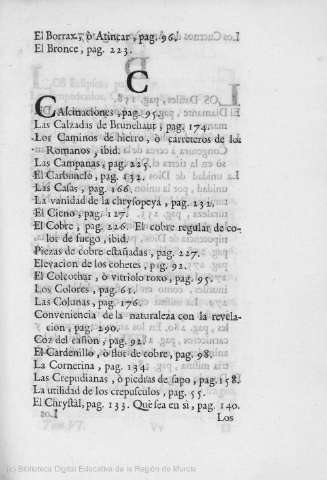 El Borrax, ò Atincar, pag. 96.
El Bronce, pag. 223.
C
CAlcinaciones, pag. 95.
Las Calzadas de Brunehaut, pag. 174.
Los Caminos de hierro, ò carreteros de los
Romanos, ibid.
Las Campanas, pag. 225.
El Carbunclo, pag. 132.
Las Casas, pag. 166.
La vanidad de la chrysopeya, pag. 232.
El Cieno, pag. 127.
El Cobre, pag. 226. El cobre regular de co-
lor de fuego, ibid.
Piezas de cobre estañadas, pag. 227.
Elevacion de los cohetes, pag. 92.
El Colcothar, ò vitriolo roxo, pag. 95.
Los Colores, pag. 61.
Las Colunas, pag. 176.
Conveniencia de la naturaleza con la revela-
cion, pag. 290.
Coz del cañon, pag. 92.
El Cardenillo, ò flor de cobre, pag. 98.
La Cornerina, pag. 134.
Las Crepudianas, ò piedras de sapo, pag. 158.
La utilidad de los crepusculos, pag. 55.
El Chrystál, pag. 133. Què sea en sì, pag. 140.
Los
(c) Biblioteca Digital Educativa de la Región de Murcia